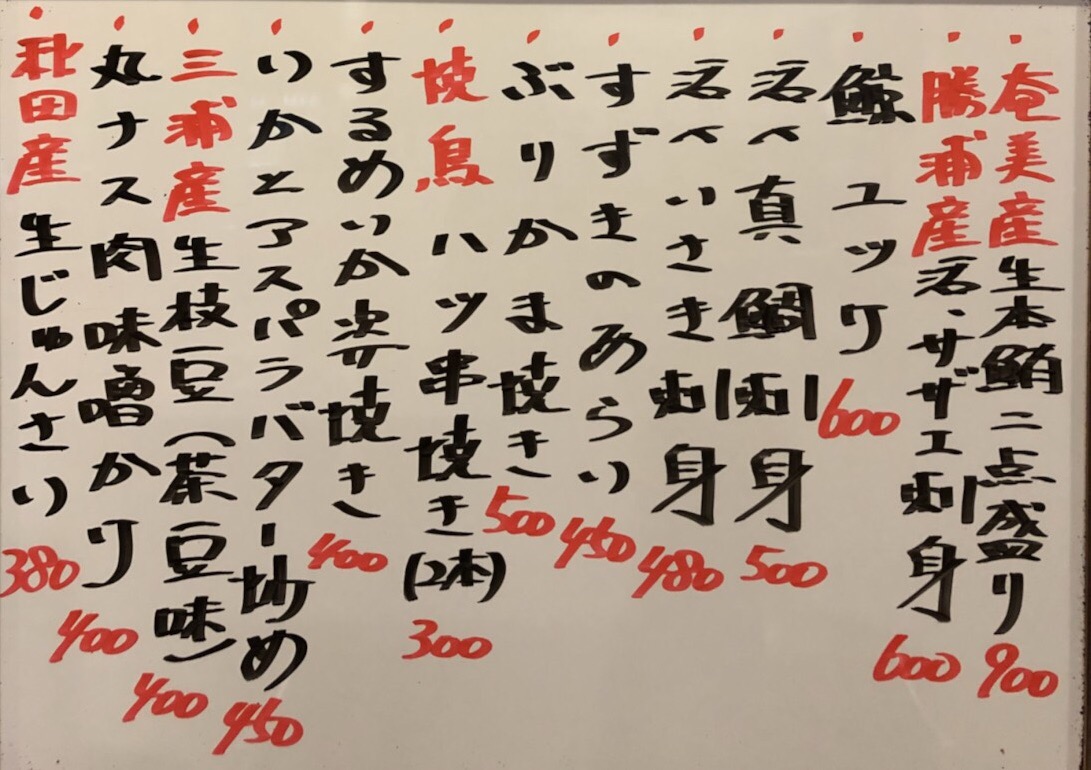 奄美産生本鮪二点盛り 900
勝浦産活・サザエ刺身 600
鯨ユッケ 600
活〆真鯛刺身 500
活〆いさき刺身 480
すずきのあらい 450
ぶりかま焼き 500
焼鳥ハツ串焼き(2本) 300
するめいか姿焼き 400
いかとアスパラバター炒め 450
三浦産生枝豆(茶豆味) 400
丸ナス肉味噌かけ 400
秋田産生じゅんさい 380